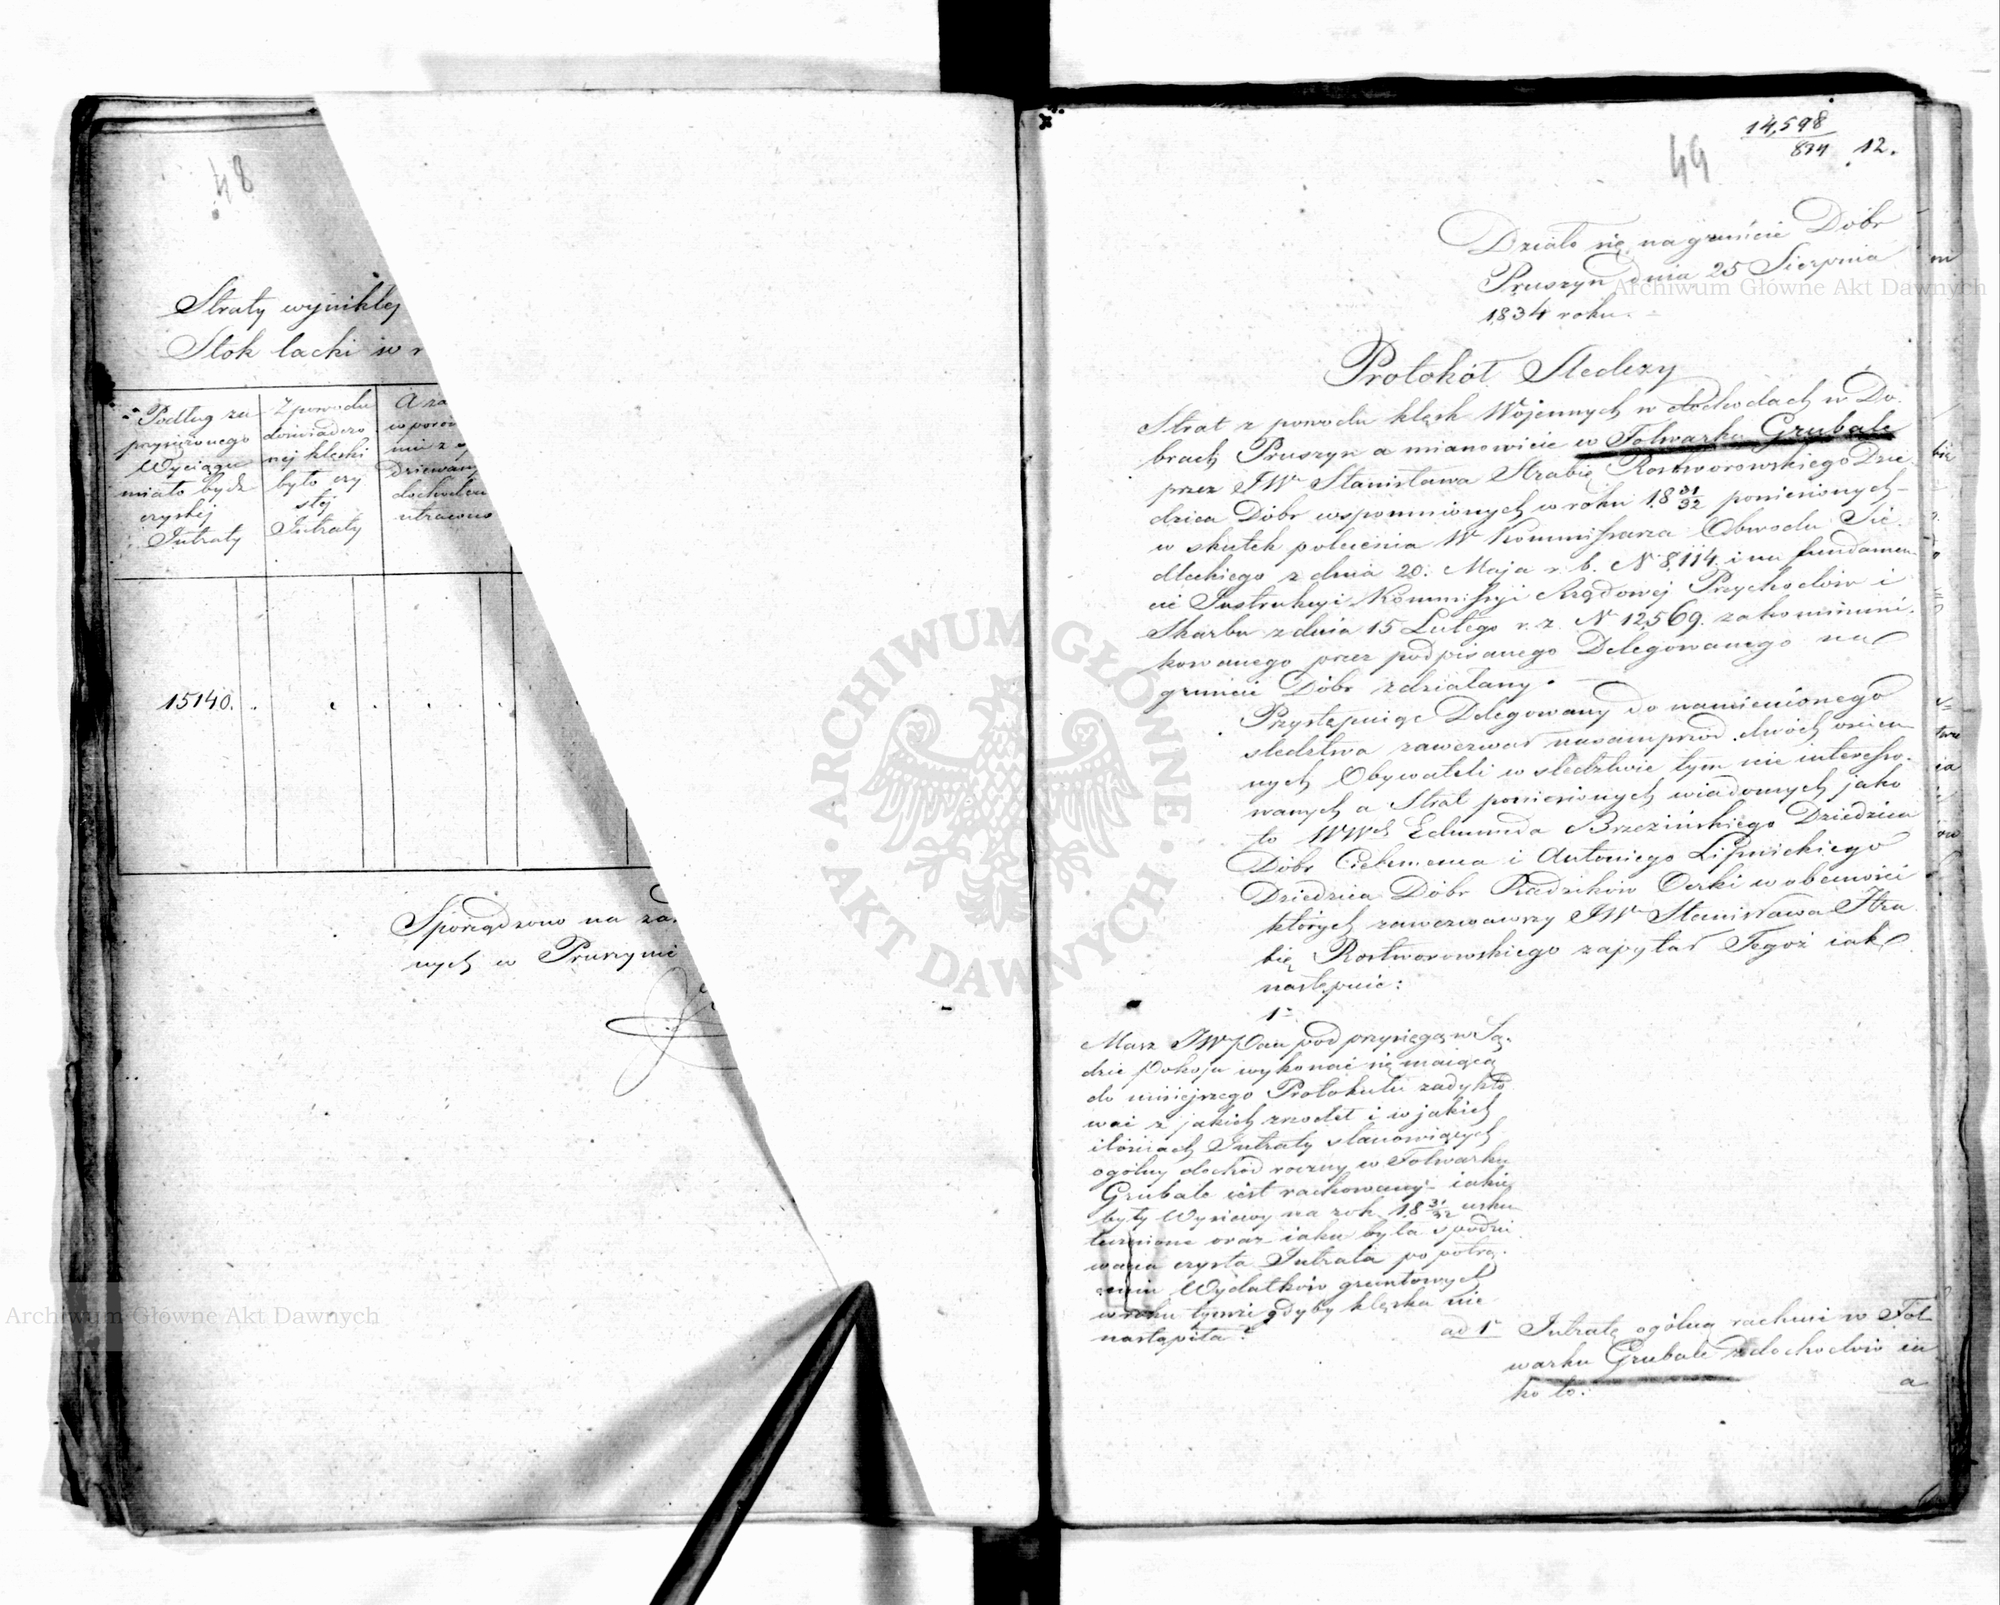 48
Straty wynikłey
Stok lacki w r
Podług za
przysiężonego
Wyciągu
miało bydź
czystéj
Intraty
Z powodu
doświadczo
néj klęski
było czy
stéj
Intraty
A za
w porów
mi z
dziewany
dochodem
utracono
15140.
Sporządzono na za
nych w Pruszynie
14,598
834
12.
49
Działo się na gruncie Dóbr
Pruszyn dnia 25 Sierpnia
1834 roku.
Protokół Sledczy
Strat z powodu klęsk Wojennych w dochodach w Do-
brach Pruszyn a mianowicie w Folwarku Grubale
przez JW Stanisława Hrabię Rostworowskiego Dzie-
dzica Dóbr wspomnionych w roku 18 31/32 poniesionych
w skutek polecenia W Kommissarza Obwodu Sie-
dleckiego z dnia 20. Maja r. b. N 8,114. i na fundamen-
cie Instrukcyi Kommissyi Rządowej Przychodów i
Skarbu z dnia 15 Lutego r. z. N 12,569. zakommuni-
kowanego przez podpisanego Delegowanego na
gruncie Dóbr zdziałany.
Przystępuiąc Delegowany do namienionego
sledztwa zawezwał nasamprzód dwóch oscien
nych Obywateli w sledztwie tym nie interesso-
wanych a Strat poniesionych wiadomych jako
to WWch Edmunda Brzezińskiego Dziedzica
Dóbr i Antoniego Lipnickiego
Dziedzica Dóbr Radzików Oczki w obecności
których zawezwawszy JW Stanisława Hra
bię Rostworowskiego zapytał Tegoż iak
następuie:
1
Masz JWPan pod przysięgą w Są-
dzie Pokoju wykonać się maiącą
do niniejszego Protokułu zadykto
wać z jakich źrzodeł i w jakich
ilościach Intraty stanowiących
ogólny dochód roczny w Folwarku
Grubale iest rachowany iakie
były Wysiewy na rok 18 31/32 usku
tecznione oraz iaka była spodzie
wana czysta Intrata po potrą-
ceniu Wydatków gruntowych
w roku tymże gdyby klęska nie
nastąpiła?
ad 1 Intratę ogólną rachuię w Fol
warku Grubale z dochodów ia
ko to:
a
Archiwum Główne Akt Dawnych
ARCHIWUM GŁÓWNE
AKT DAWNYCH
Archiwum Główne Akt Dawnych